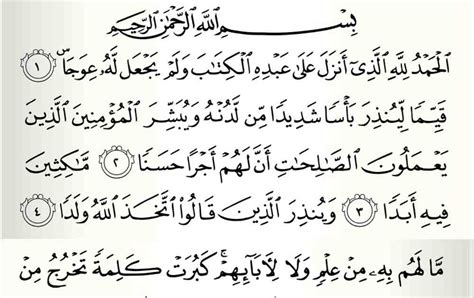 بِسْمِ اللَّهِ الرَّحْمَٰنِ الرَّحِيمِ
الْحَمْدُ لِلَّهِ الَّذِي أَنزَلَ عَلَىٰ عَبْدِهِ الْكِتَابَ وَلَمْ يَجْعَل لَّهُ عِوَجًا ۜ ١
قَيِّمًا لِّيُنذِرَ بَأْسًا شَدِيدًا مِّن لَّدُنْهُ وَيُبَشِّرَ الْمُؤْمِنِينَ الَّذِينَ
يَعْمَلُونَ الصَّالِحَاتِ أَنَّ لَهُمْ أَجْرًا حَسَنًا ٢ مَّاكِثِينَ
فِيهِ أَبَدًا ٣ وَيُنذِرَ الَّذِينَ قَالُوا اتَّخَذَ اللَّهُ وَلَدًا ٤
مَّا لَهُم بِهِ مِنْ عِلْمٍ وَلَا لِآبَائِهِمْ ۚ كَبُرَتْ كَلِمَةً تَخْرُجُ مِنْ